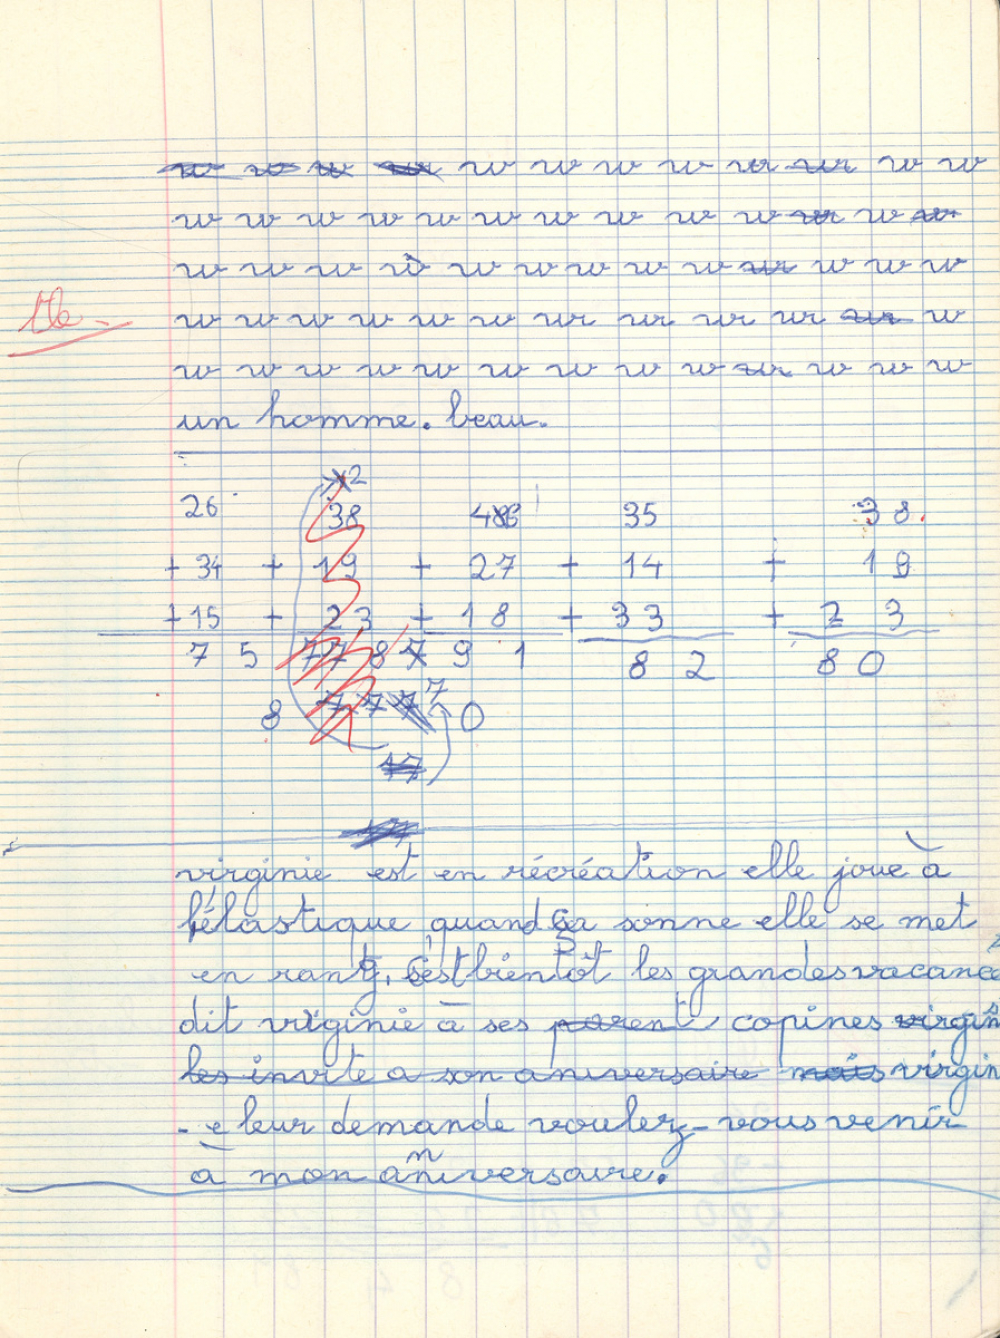 w w w w w w w w w w w w
w w w w w w w w w w w w w
w w w w w w w w w w w w w
w w w w w w w w w w w w
w w w w w w w w w w w w w
un homme. beau.
26 38 486 35 38
+ 34 + 19 + 27 + 14 + 19
+ 15 + 23 + 18 + 33 + 23
7 5 77 8 7 9 1 8 2 8 0
8 7 7 7 7 0
virginie est en récréation elle joue à
l'élastique quand ça sonne elle se met
en rang, c'est bientôt les grandes vacance
dit virginie à ses parent, copines virgin
les invite a son aniversaire mais virgin
- e leur demande voulez-vous venir
n
à mon aniversaire.